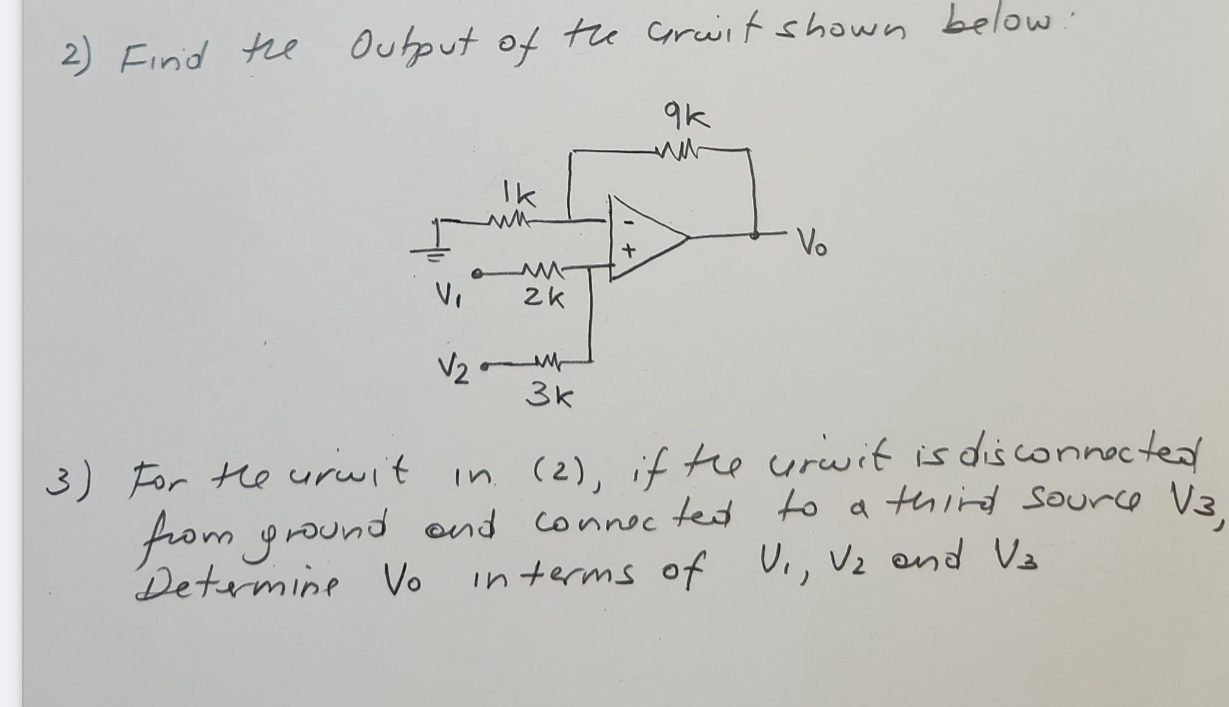 2) Find the Output of the circuit shown below:
9k
1k
-
+
Vo
V1
2k
V2
3k
3) For the circuit in (2), if the circuit is disconnected
from ground and connected to a third source V3,
Determine Vo in terms of V1, V2 and V3